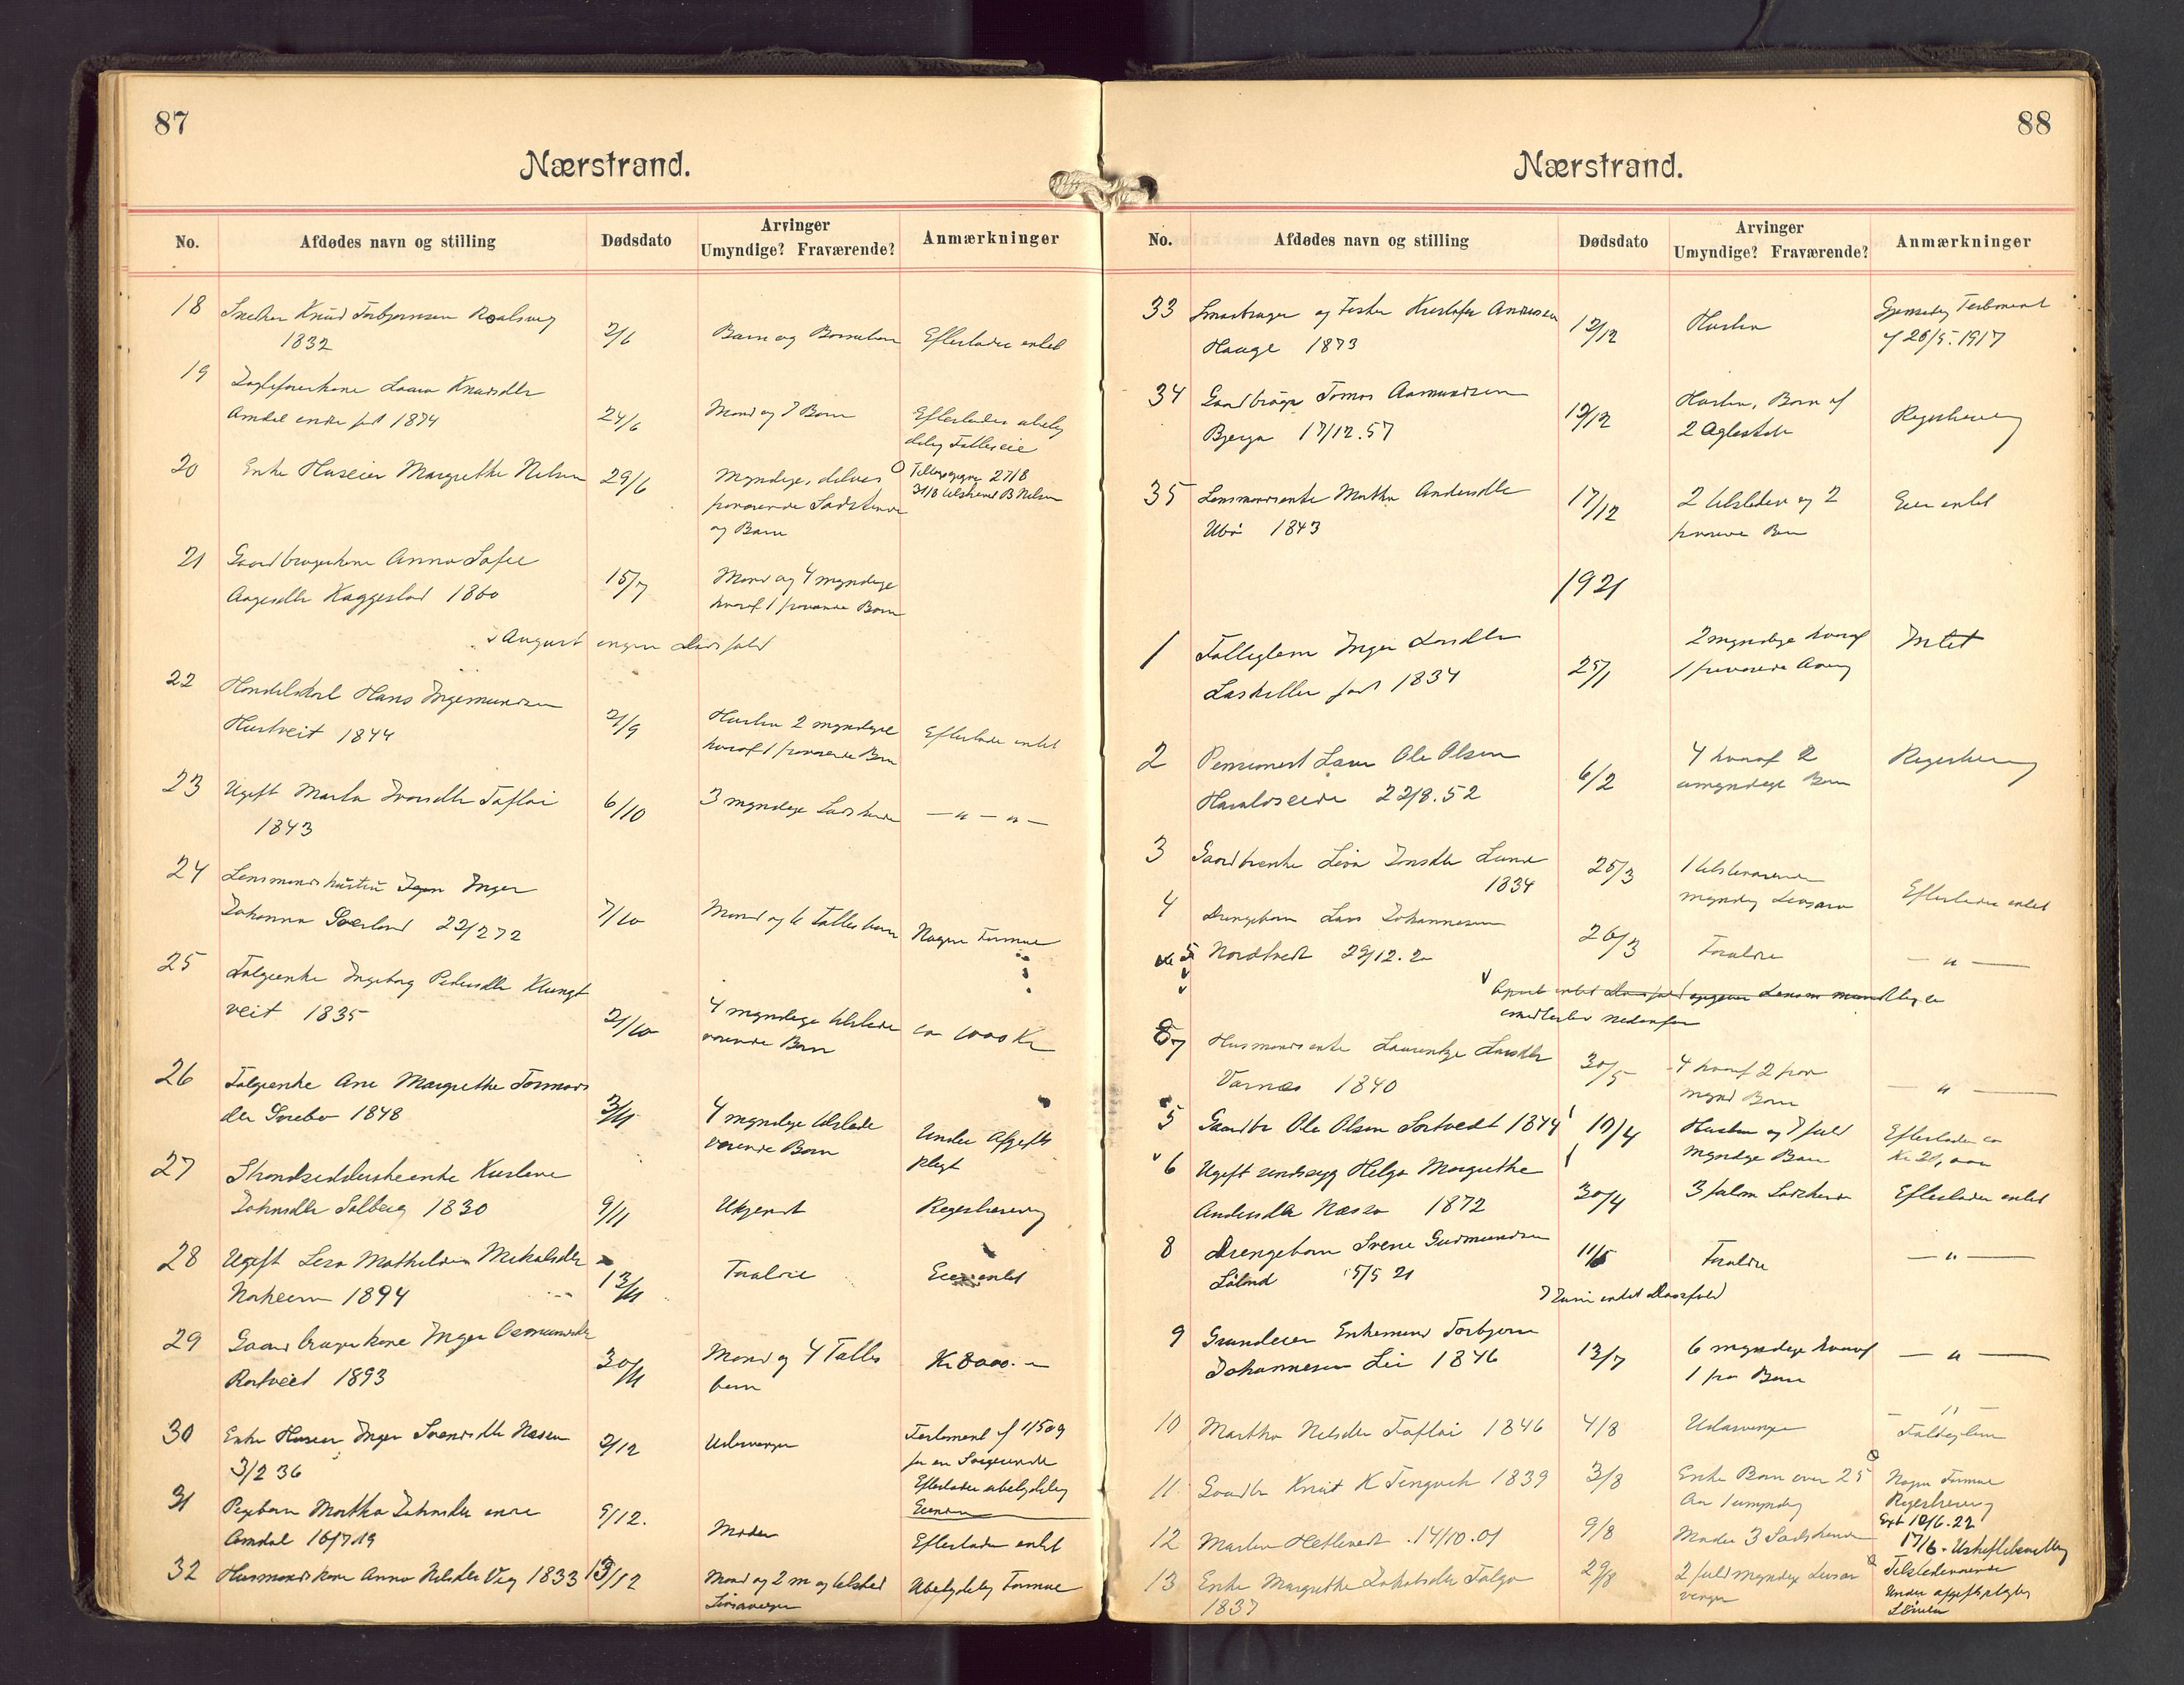 87
Nærstrand.
No. Afdødes navn og stilling Dødsdato Arvinger Umyndige? Fraværende? Anmærkninger
18 Snekker Knud Torbjørnsen Roalsvig
1832 2/6 Barn og Barnebarn Efterlader intet
19
Amdal indre født 1874 24/6 Mand og 7 Børn Efterlader ubety
delig Fælleseie
20 Enke Huseier Margrethe Nilsen 29/6 Myndige, delvis
fraværende Søskende
og Barn
27/8
31/8 B Nilsen
21 Gaardbrugerkone Anna Sofie
Aagesdtr Kaggestad 1860 15/7 Mand og 4 myndige
hvoraf 1 fraværende Børn
i August ingen Dødsfald
22 Handelskarl Hans Ingemundsen
Hustveit 1844 2/9 Hustru 2 myndige
hvoraf 1 fraværende Børn Efterlader intet
23 Ugift Marta Ivarsdtr Tofløi
1843 6/10 3 myndige Søskende — " — " —
24 Lensmandshustru Inger
Johanna Sørland 22/2 72 7/10 Mand og 6 Fælles børn Nogen Formue
25 Folgeenke Ingeborg Pedersdtr Klungt
veit 1835 2/10 4 myndige tilstede
værende Børn ca 1000 Kr
26 Folgeenke Ane Margrethe Tormods
dtr Sørebø 1848 3/11 4 myndige tilstede
værende Børn Under Afgifts
pligt
27 Strandsidderskeenke Kirstine
Johnsdtr Solberg 1830 9/11 Ukjendt Registrering
28 Ugift Lisa Mathilda Mikalsdtr
Norheim 1894 13/11 Forældre Eier intet
29 Gaardbrugerkone Inger Osmundsdtr
Rortveit 1893 30/11 Mand og 4 Fælles
børn Kr 8000.-
30 Enke Huseier Inger Svendsdtr Næsen
3/2 36 2/12 Udarvinger Testament af 1/5 09
Efterlader ubetydelig
Eiendom
31 Pigebarn Martha Johnsdtr indre
Amdal 16/7 19 9/12. Moder Efterlader intet
32 Husmandskone Anna Nilsdtr Vig 1833 13/12 Mand og 2 m og tilsted
Livsarvinger Ubetydelig Formue
88
Nærstrand.
No. Afdødes navn og stilling Dødsdato Arvinger Umyndige? Fraværende? Anmærkninger
33 Smaabruger og Fisker Kristofer Andreassen
Hauge 1873 12/12 Hustru Gjensidig Testament
af 26/5. 1917
34 Gaardbruger Tomas Aamundsen
Bjerga 17/12. 57 12/12 Hustru, Børn af
2 Ægteskab Registrering
35 Lensmandsenke Martha Andersdtr
Ubø 1843 17/12 2 tilstede og 2
fravær Børn Eier intet
1921
1 Fattiglem Inger Larsdtr
født 1834 25/1 2 myndige hvoraf
1 fraværende Arving Intet
2 Pensionert Ole Olsen
Haraldseide 22/8. 52 6/2 4 hvoraf 2
umyndige Børn Registrering
3 Gaardbrenke Lisa Jonsdtr Lunde
1834 25/3 1 tilstedeværende
myndig Livsarv Efterlader intet
4 Drengebarn Lars Johannessen
Nordtvedt 29/12. 20 26/3 Forældre — " —
April intet Dødsfald opgiver Lensm. mundtlig
imidlertid nedenfor
7 Husmandsenke Laurentze Larsdtr
Varnes 1840 30/5 4 hvoraf 2 frav
mynd Børn — " —
5 Gaardbr Ole Olsen Sortvedt 1844 19/4 Hustru og 7 fuld
myndige Børn Efterlader ca
Kr 20,000
6 Ugift sindssyg Helga Margrethe
Andersdtr Næssa 1872 30/4 3 Søskende Efterlader intet
8 Drengebarn Svene Gudmundsen
5/5 21 11/5 Forældre — " —
I Juni intet Dødsfald
9 Grundeier Enkemand Torbjørn
Johannesen Lie 1846 13/7 6 myndige hvoraf
1 frav Børn — " —
10 Martha Nilsdtr Tofløi 1846 4/8 Udarvinger — " —
Fattiglem
11 Gaardbr Knut K Tengesdal 1839 3/8 Enke Børn over 25
Aar 1 umyndig Nogen Formue
Registrering
12 Martin Hetlevedt. 14/10. 01 9/8 Moder 3 Søskende Exp 10/6. 22
17/6. Uskiftebevilling
13 Enke Margrethe Jakobsdtr Folgø
1837 29/8 2 fuldmyndige Livsar
vinger Tilstedeværende
Under afgiftspligtig